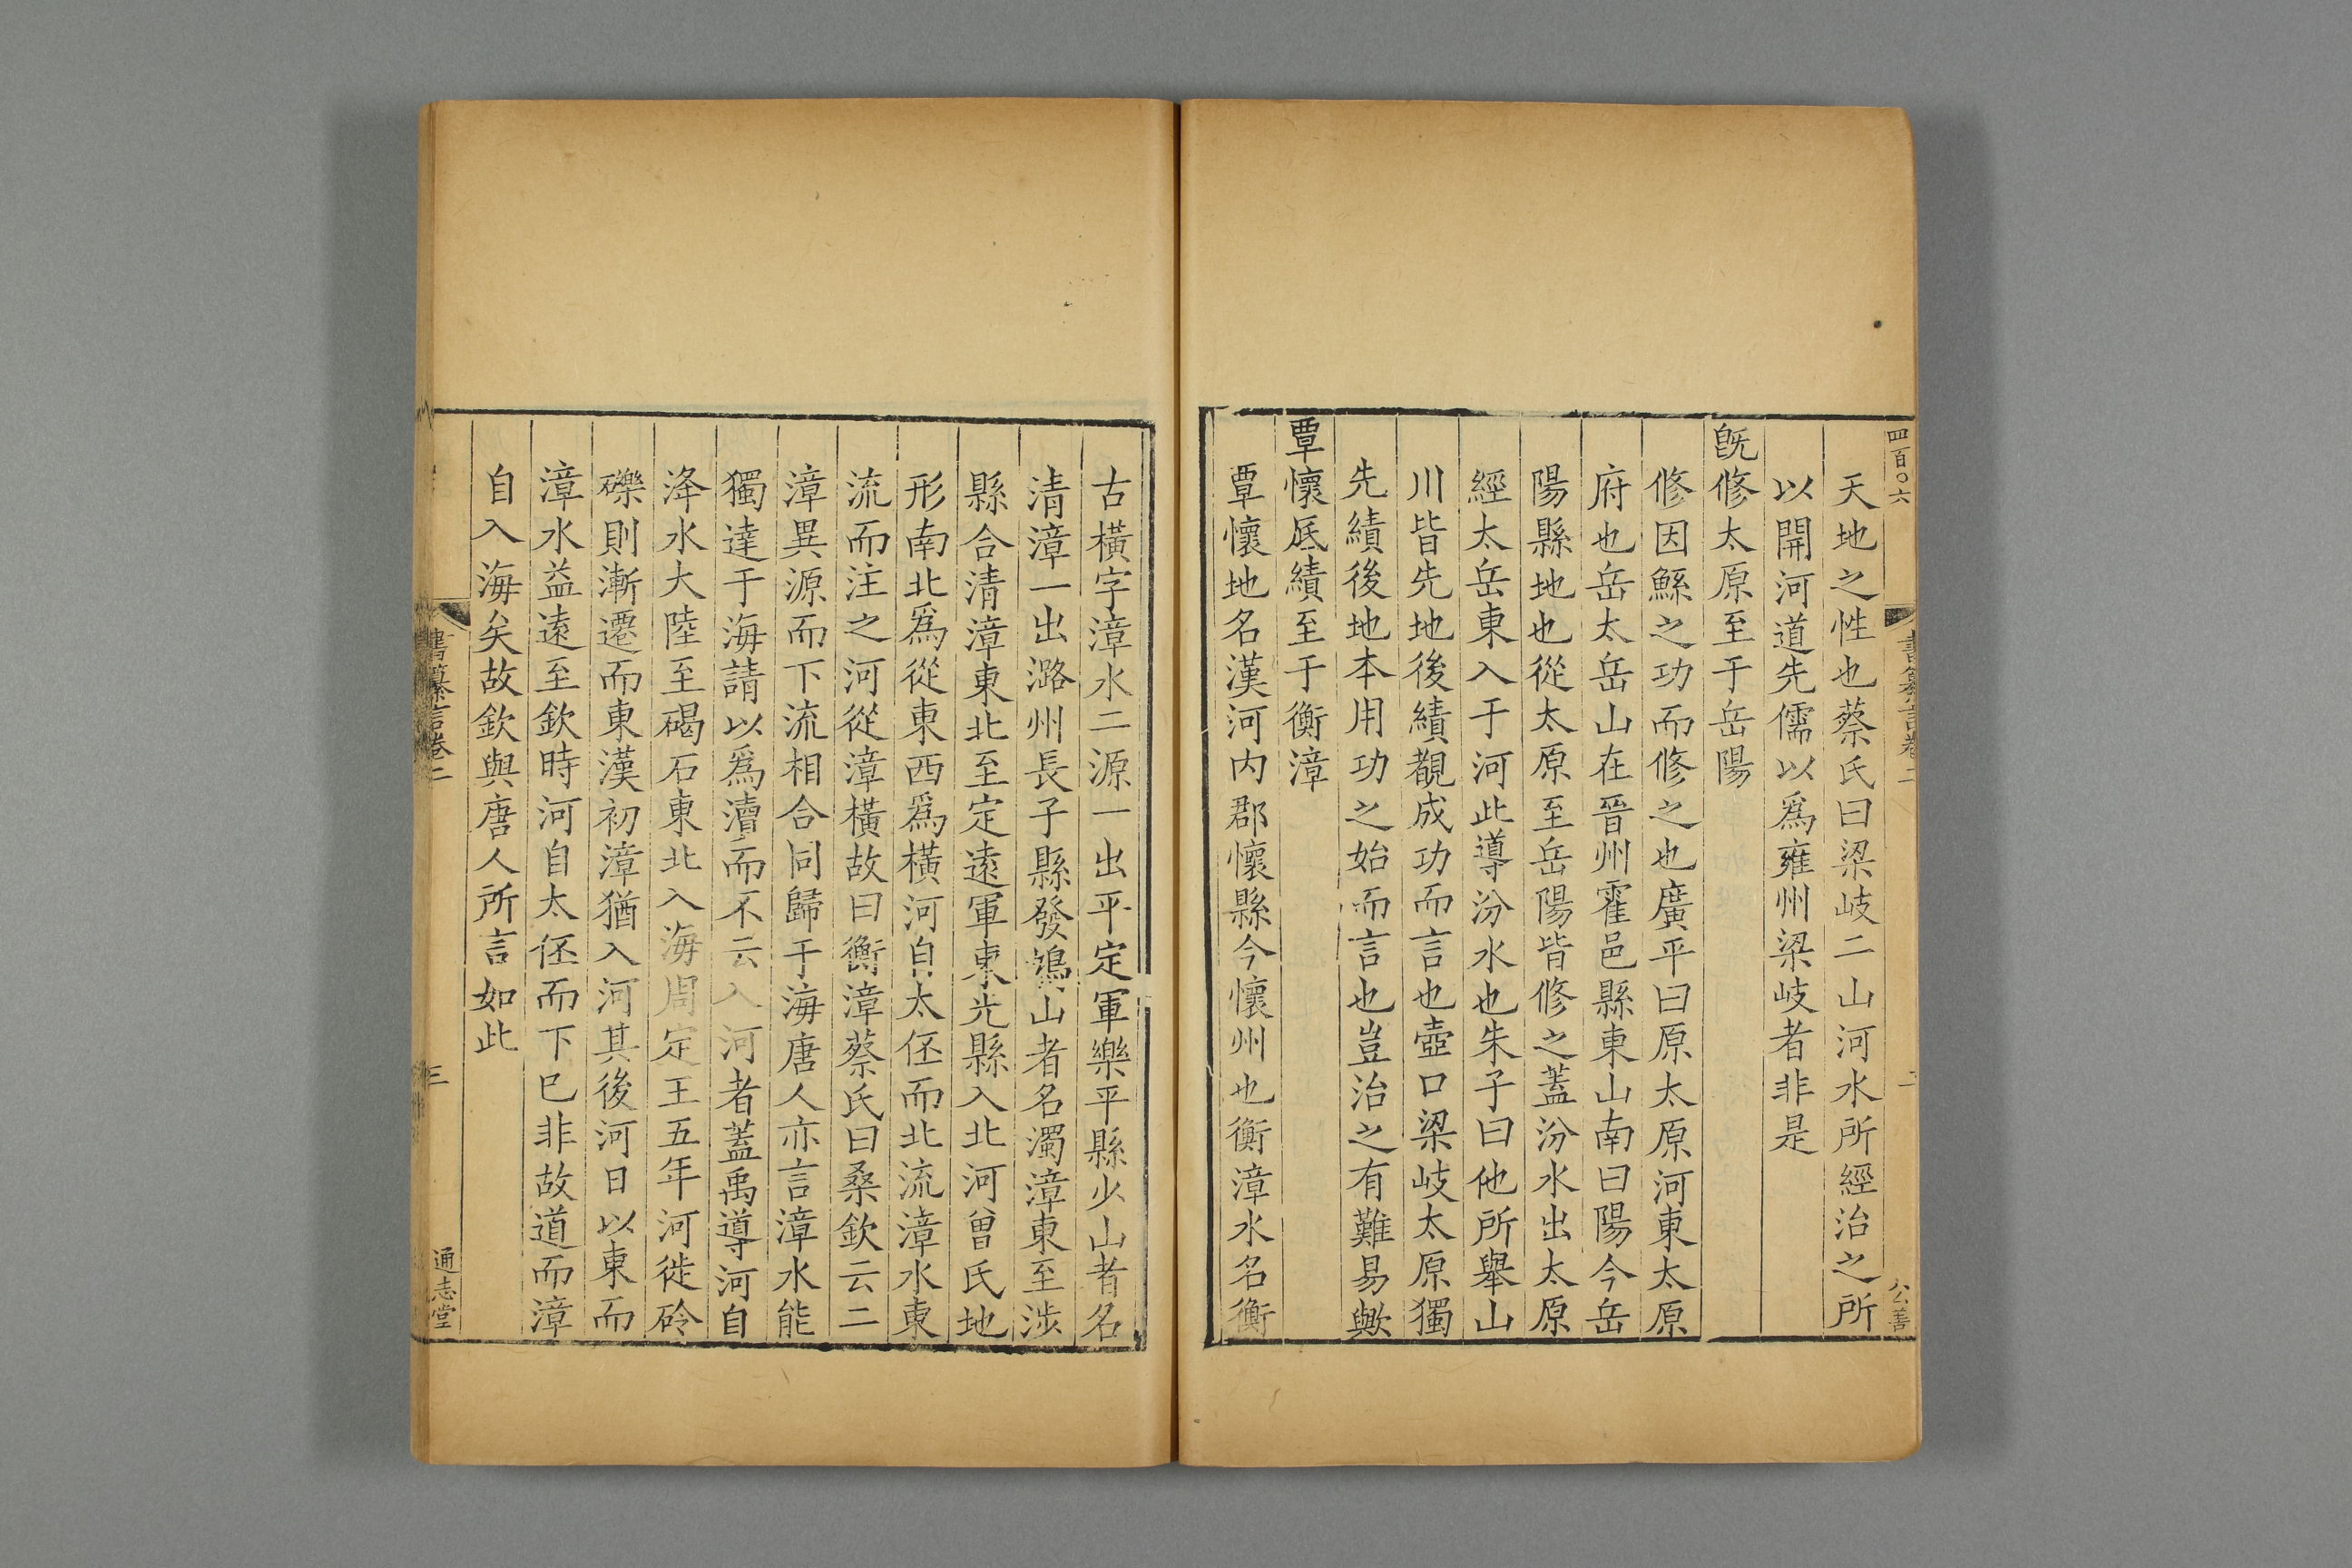 四百〇六
書纂言卷二
二
公善
天地之性也蔡氏曰梁岐二山河水所經治之所
以開河道先儒以爲雍州梁岐者非是
旣修太原至于岳陽
修因鯀之功而修之也廣平曰原太原河東太原
府也岳太岳山在晉州霍邑縣東山南曰陽今岳
陽縣地也從太原至岳陽皆修之蓋汾水出太原
經太岳東入于河此導汾水也朱子曰他所舉山
川皆先地後績觀成功而言也壺口梁岐太原獨
先績後地本用功之始而言也豈治之有難易歟
覃懷厎績至于衡漳
覃懷地名漢河內郡懷縣今懷州也衡漳水名衡
古橫字漳水二源一出平定軍樂平縣少山者名
清漳一出潞州長子縣發鳩山者名濁漳東至涉
縣合清漳東北至定遠軍東光縣入北河曾氏地
形南北爲從東西爲橫河自太伾而北流漳水東
流而注之河從漳橫故曰衡漳蔡氏曰桑欽云二
漳異源而下流相合同歸于海唐人亦言漳水能
獨達于海請以爲瀆而不云入河者蓋禹導河自
洚水大陸至碣石東北入海周定王五年河徙砱
礫則漸遷而東漢初漳猶入河其後河日以東而
漳水益遠至欽時河自太伾而下已非故道而漳
自入海矣故欽與唐人所言如此
書纂言卷二
三
通志堂